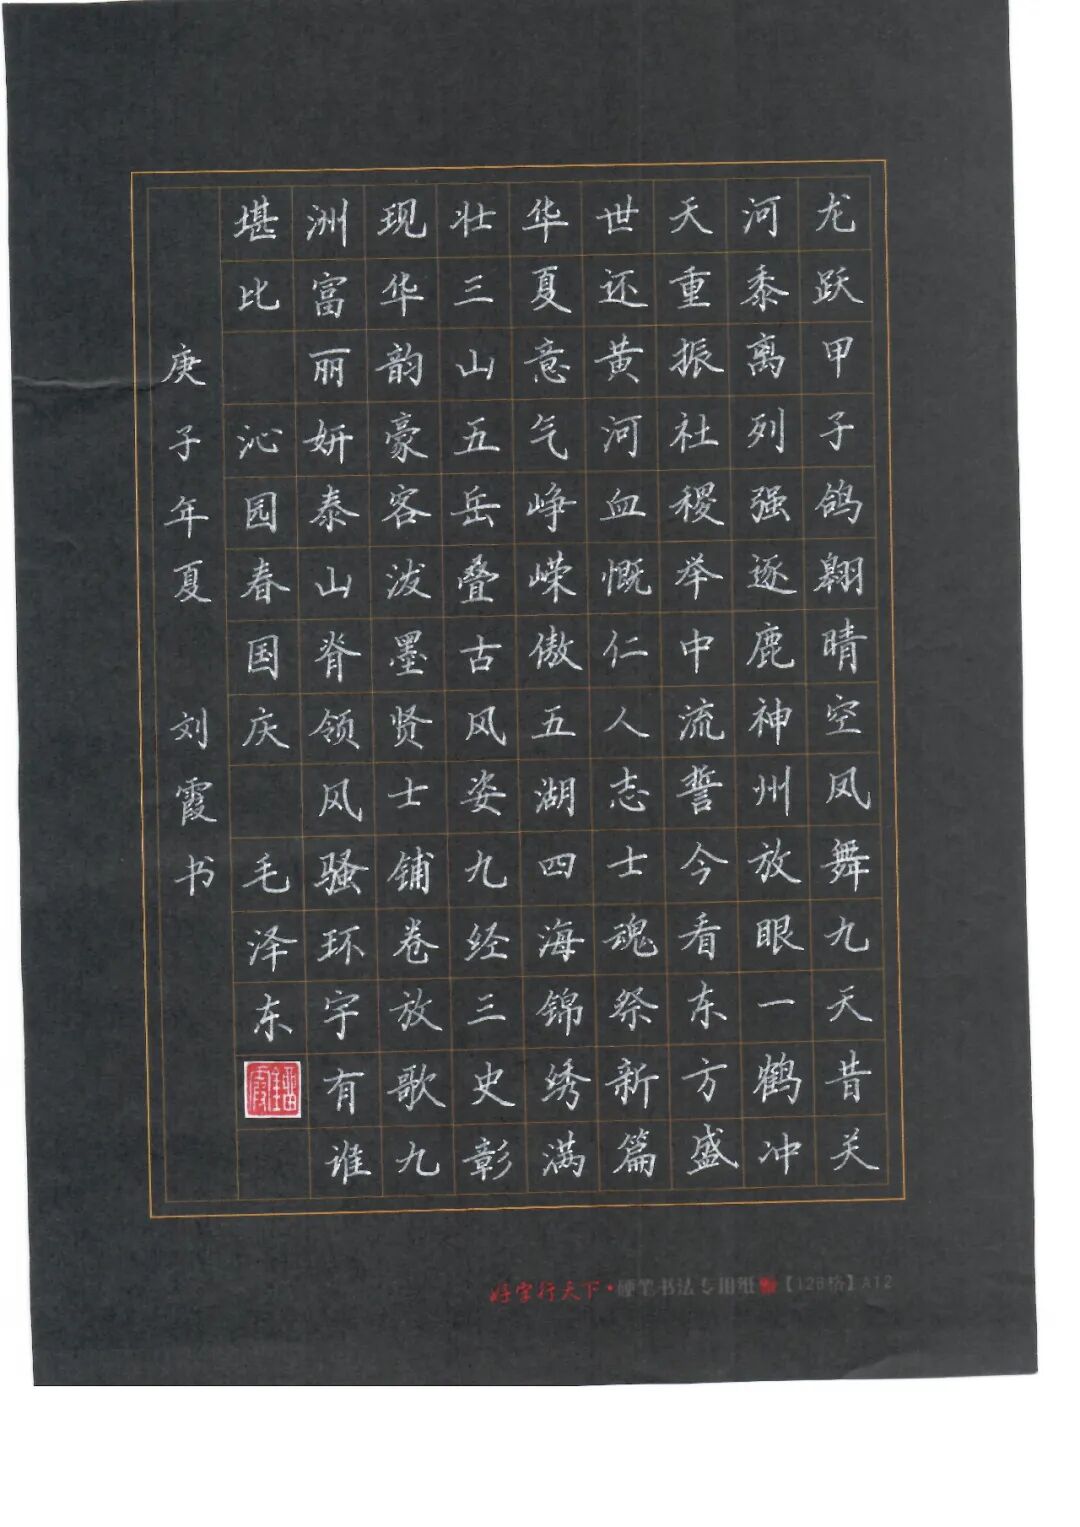 龙跃甲子鸽翱晴空凤舞九天昔关
河黍离列强逐鹿神州放眼一鹤冲
天重振社稷举中流誓今看东方盛
世还黄河血慨仁人志士魂祭新篇
华夏意气峥嵘傲五湖四海锦绣满
壮三山五岳叠古风姿九经三史彰
现华韵豪客泼墨贤士铺卷放歌九
洲富丽妍泰山脊领风骚环宇有谁
堪比 沁园春国庆 毛泽东
庚子年夏 刘霞书
好字行天下·硬笔书法专用纸【126格】A12